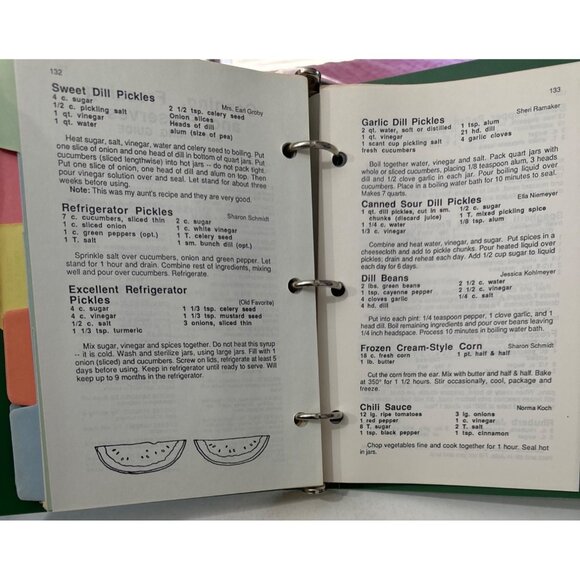 132
Sweet Dill Pickles
Mrs. Earl Groby
4 c. sugar
1/2 c. pickling salt
1 qt. vinegar
1 qt. water
2 1/2 tsp. celery seed
Onion slices
Heads of dill
alum (size of pea)
Heat sugar, salt, vinegar, water and celery seed to boiling. Put
one slice of onion and one head of dill in bottom of quart jars. Put
cucumbers (sliced lengthwise) into hot jars -- do not pack tight.
Put one slice of onion, one head of dill and alum on top. Then
pour vinegar solution over and seal. Let stand for about three
weeks before using.
Note: This was my aunt's recipe and they are very good.
Refrigerator Pickles
Sharon Schmidt
7 c. cucumbers, sliced thin
1 c. sliced onion
1 c. green peppers (opt.)
1 T. salt
2 c. sugar
1 c. white vinegar
1 T. celery seed
1 sm. bunch dill (opt.)
Sprinkle salt over cucumbers, onion and green pepper. Let
stand for 1 hour and drain. Combine rest of ingredients, mixing
well and pour over cucumbers. Refrigerate.
Excellent Refrigerator
Pickles
(Old Favorite)
4 c. sugar
4 c. vinegar
1/2 c. salt
1 1/3 tsp. turmeric
1 1/3 tsp. celery seed
1 1/3 tsp. mustard seed
3 onions, sliced thin
Mix sugar, vinegar and spices together. Do not heat this syrup
-- it is cold. Wash and sterilize jars, using large jars. Fill with 1
onion (sliced) and cucumbers. Screw on lids, refrigerate at least 5
days before using. Keep in refrigerator until ready to serve. Will
keep up to 9 months in the refrigerator.
133
Garlic Dill Pickles
Sheri Ramaker
2 qt. water, soft or distilled
1 qt. vinegar
1 scant cup pickling salt
fresh cucumbers
1 tsp. alum
21 hd. dill
4 garlic cloves
Boil together water, vinegar, and salt. Pack quart jars with
whole or sliced cucumbers, placing 1/8 teaspoon alum, 3 heads
dill and 1/2 clove garlic in each jar. Pour boiling liquid over
cucumbers. Place in a boiling water bath for 10 minutes to seal.
Makes 7 quarts.
Canned Sour Dill Pickles
Ella Niemeyer
1 qt. dill pickles, cut in sm.
chunks (discard juice)
1 1/4 c. water
1/3 c. vinegar
1/2 c. sugar
1 T. mixed pickling spice
1/8 tsp. alum
Combine and heat water, vinegar, and sugar. Put spices in a
cheesecloth and add to pickle chunks. Pour heated liquid over
pickles; drain and reheat each day. Add 1/2 cup sugar to liquid
each day for 6 days.
Dill Beans
Jessica Kohlmeyer
2 lbs. green beans
1 tsp. cayenne pepper
4 cloves garlic
4 hd. dill
2 1/2 c. water
2 1/2 c. vinegar
1/4 c. salt
Put into each pint: 1/4 teaspoon pepper, 1 clove garlic, and 1
head dill. Boil remaining ingredients and pour over beans leaving
1/4 inch headspace. Process 10 minutes in boiling water bath.
Frozen Cream-Style Corn
Sharon Schmidt
16 c. fresh corn
1 lb. butter
1 pt. half & half
Cut the corn from the ear. Mix with butter and half & half. Bake
at 350° for 1 1/2 hours. Stir occasionally, cool, package and
freeze.
Chili Sauce
Norma Koch
12 lg. ripe tomatoes
1 red pepper
6 T. sugar
1 tsp. black pepper
3 lg. onions
1 c. vinegar
2 T. salt
1 tsp. cinnamon
Chop vegetables fine and cook together for 1 hour. Seal hot
in jars.